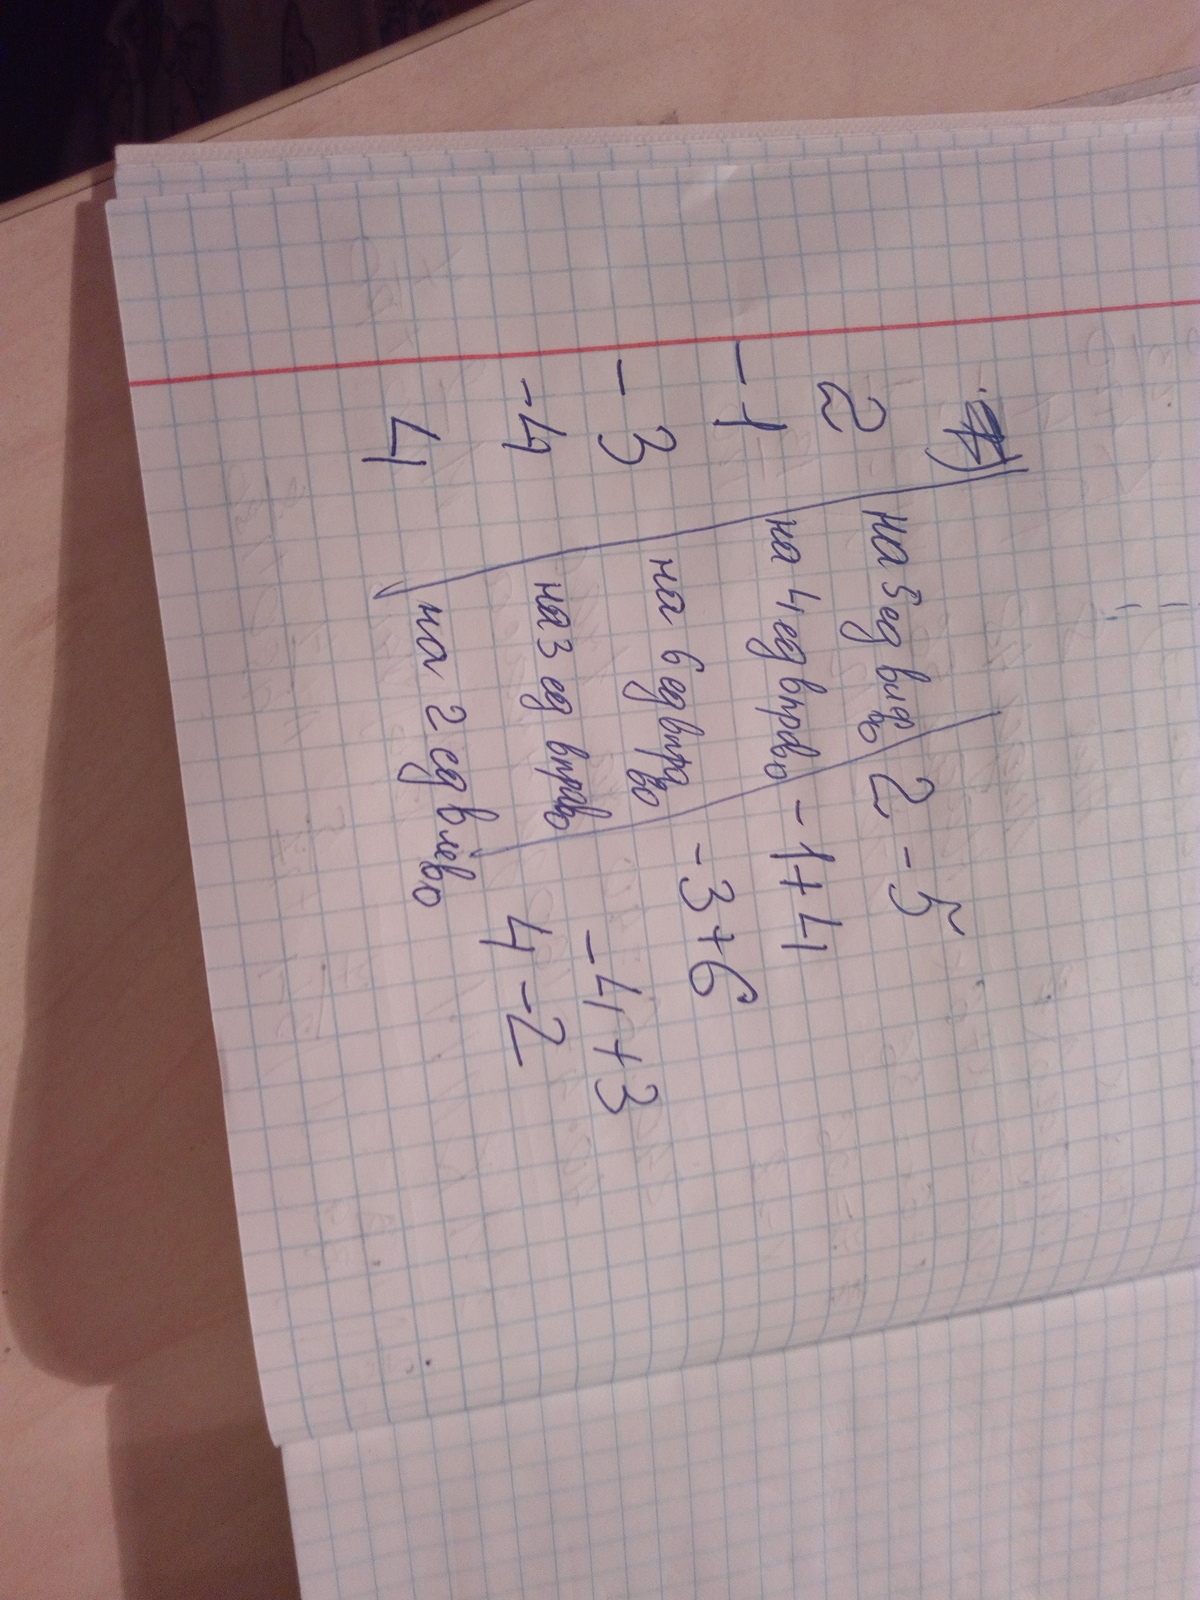 2 на 5 ед вправо 2 - 5
- 1 на 4 ед вправо - 1 + 4
- 3 на 6 ед вправо - 3 + 6
- 4 на 3 ед вправо - 4 + 3
4 на 2 ед влево 4 - 2